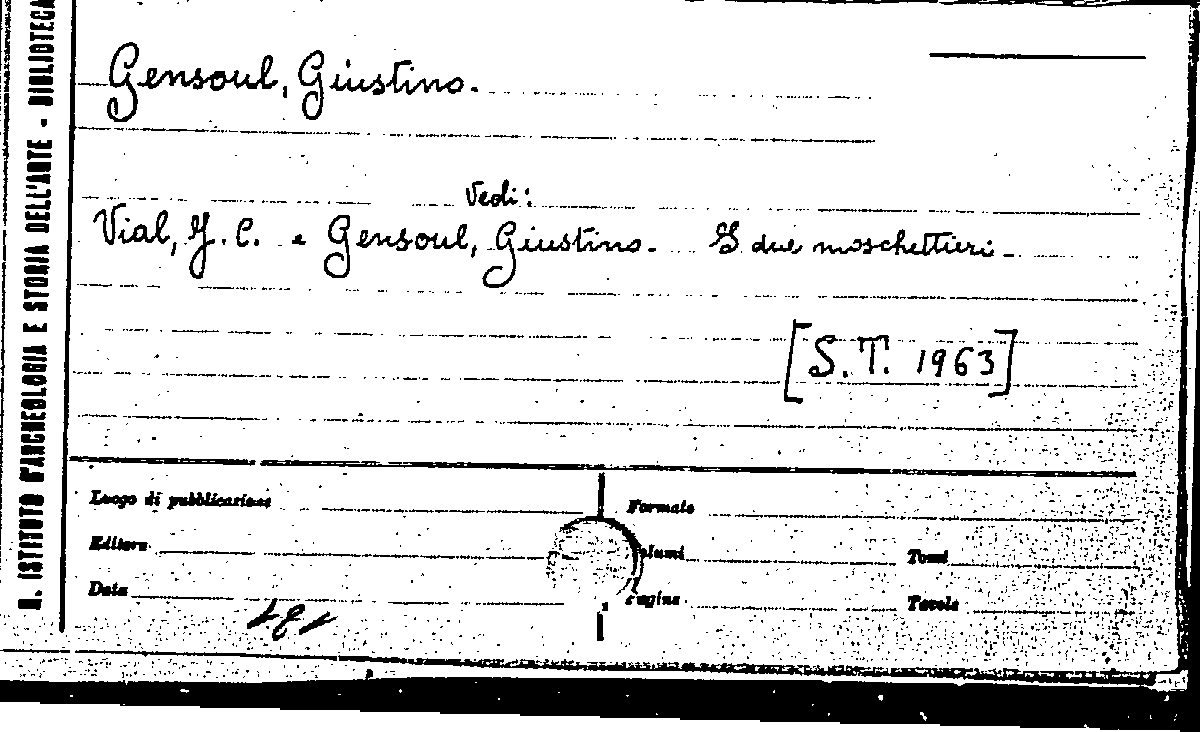 R. ISTITUTO D'ARCHEOLOGIA E STORIA DELL'ARTE - BIBLIOTECA
Gensoul, Giustino.
Vedi:
Vial, J. C. e Gensoul, Giustino. I due moschettieri.
[S.T. 1963]
Luogo di pubblicazione
Formato
Editore
Volumi
Tomi
Data
Pagine
Tavole